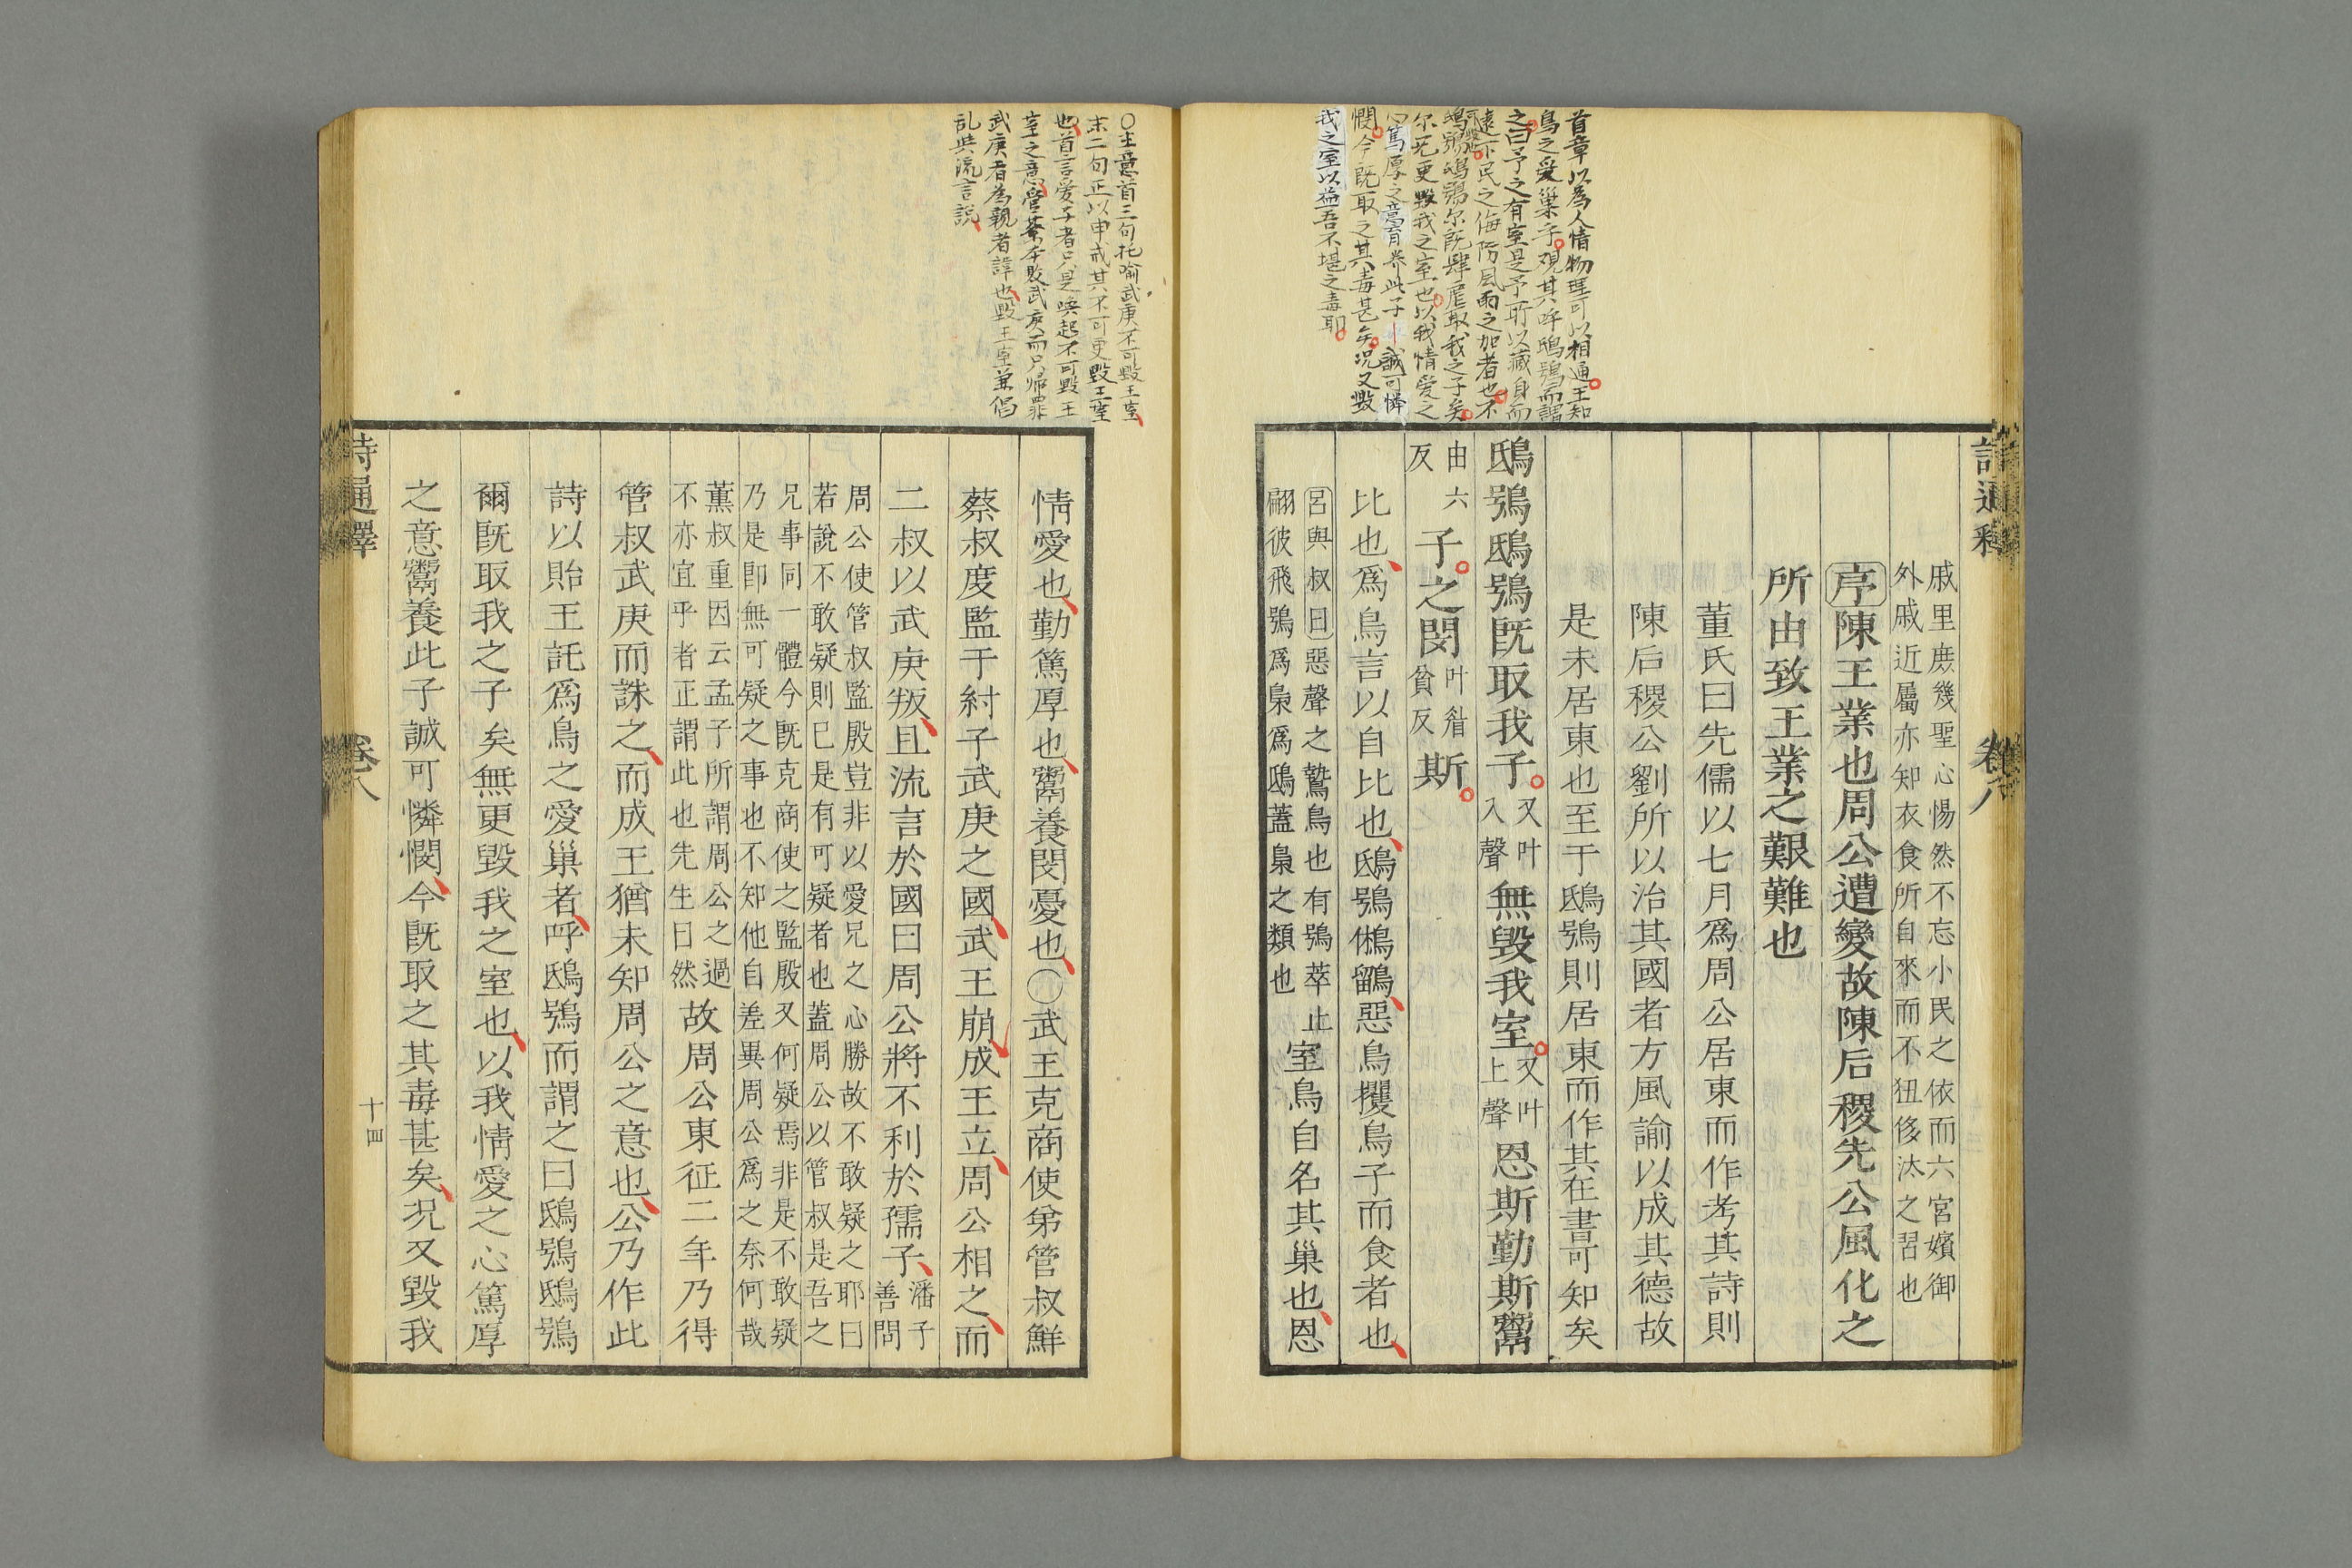 首章以為人情物理可以相通王知
鳥之愛巢乎觀其呼鴟鴞而謂
之曰予之有室是予所以藏身而
遠下民之侮防風雨之加者也不
鴟鴞鴟鴞尔既肆虐取我之子矣
尔无更毀我之室也以我情愛之
心篤厚之意育养此子誠可憐
憫今既取之其毒甚矣况又毀
我之室以益吾不堪之毒耶
詩通釋 卷八
戚里庶幾聖心惕然不忘小民之依而六宮嬪御
外戚近屬亦知衣食所自來而不狃侈汰之習也
序陳王業也周公遭變故陳后稷先公風化之
所由致王業之艱難也
董氏曰先儒以七月爲周公居東而作考其詩則
陳后稷公劉所以治其國者方風諭以成其德故
是未居東也至于鴟鴞則居東而作其在書可知矣
鴟鴞鴟鴞旣取我子又叶入聲無毀我室又叶上聲恩斯勤斯鬻
由六反子之閔叶眉貧反斯
比也爲鳥言以自比也鴟鴞鵂鶹惡鳥攫鳥子而食者也
呂與叔曰惡聲之鷙鳥也有鴞萃止
翩彼飛鴞爲梟爲鴟蓋梟之類也
室鳥自名其巢也恩
〇主意首三句托喻武庚不可毀王室
末二句正以申戒其不可更毀王室
也首言愛子者只是喚起不可毀王
室之意管蔡本敗武庚而只歸罪
武庚者為親者諱也毀王室兼倡
乱與流言說
情愛也勤篤厚也鬻養閔憂也〇武王克商使弟管叔鮮
蔡叔度監于紂子武庚之國武王崩成王立周公相之而
二叔以武庚叛且流言於國曰周公將不利於孺子潘子善問
周公使管叔監殷豈非以愛兄之心勝故不敢疑之耶曰
若說不敢疑則已是有可疑者也蓋周公以管叔是吾之
兄事同一體今旣克商使之監殷又何疑焉非是不敢疑
乃是卽無可疑之事也不知他自差異周公爲之奈何哉
薰叔重因云孟子所謂周公之過
不亦宜乎者正謂此也先生曰然
故周公東征二年乃得
管叔武庚而誅之而成王猶未知周公之意也公乃作此
詩以貽王託爲鳥之愛巢者呼鴟鴞而謂之曰鴟鴞鴟鴞
爾旣取我之子矣無更毀我之室也以我情愛之心篤厚
之意鬻養此子誠可憐憫今旣取之其毒甚矣况又毀我
詩通釋 卷八 十四